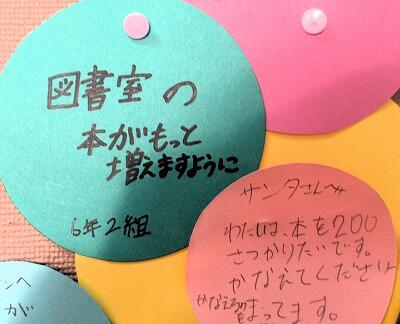 図書室の
本がもっと
増えますように
6年2組
サンタさんへ
わたしは、本を200
さつかりたいです。
かなえてください
まってます。
ンへ
が